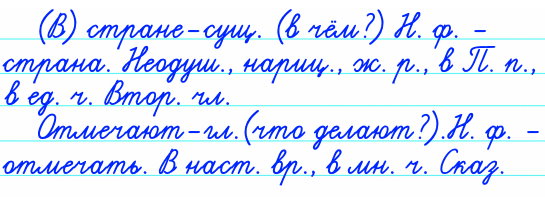 (В) стране-сущ. (в чём?) Н. ф. -
страна. Неодуш., нариц., ж. р., в П. п.,
в ед. ч. Втор. чл.
Отмечают-гл.(что делают?).Н. ф. -
отмечать. В наст. вр., в мн. ч. Сказ.